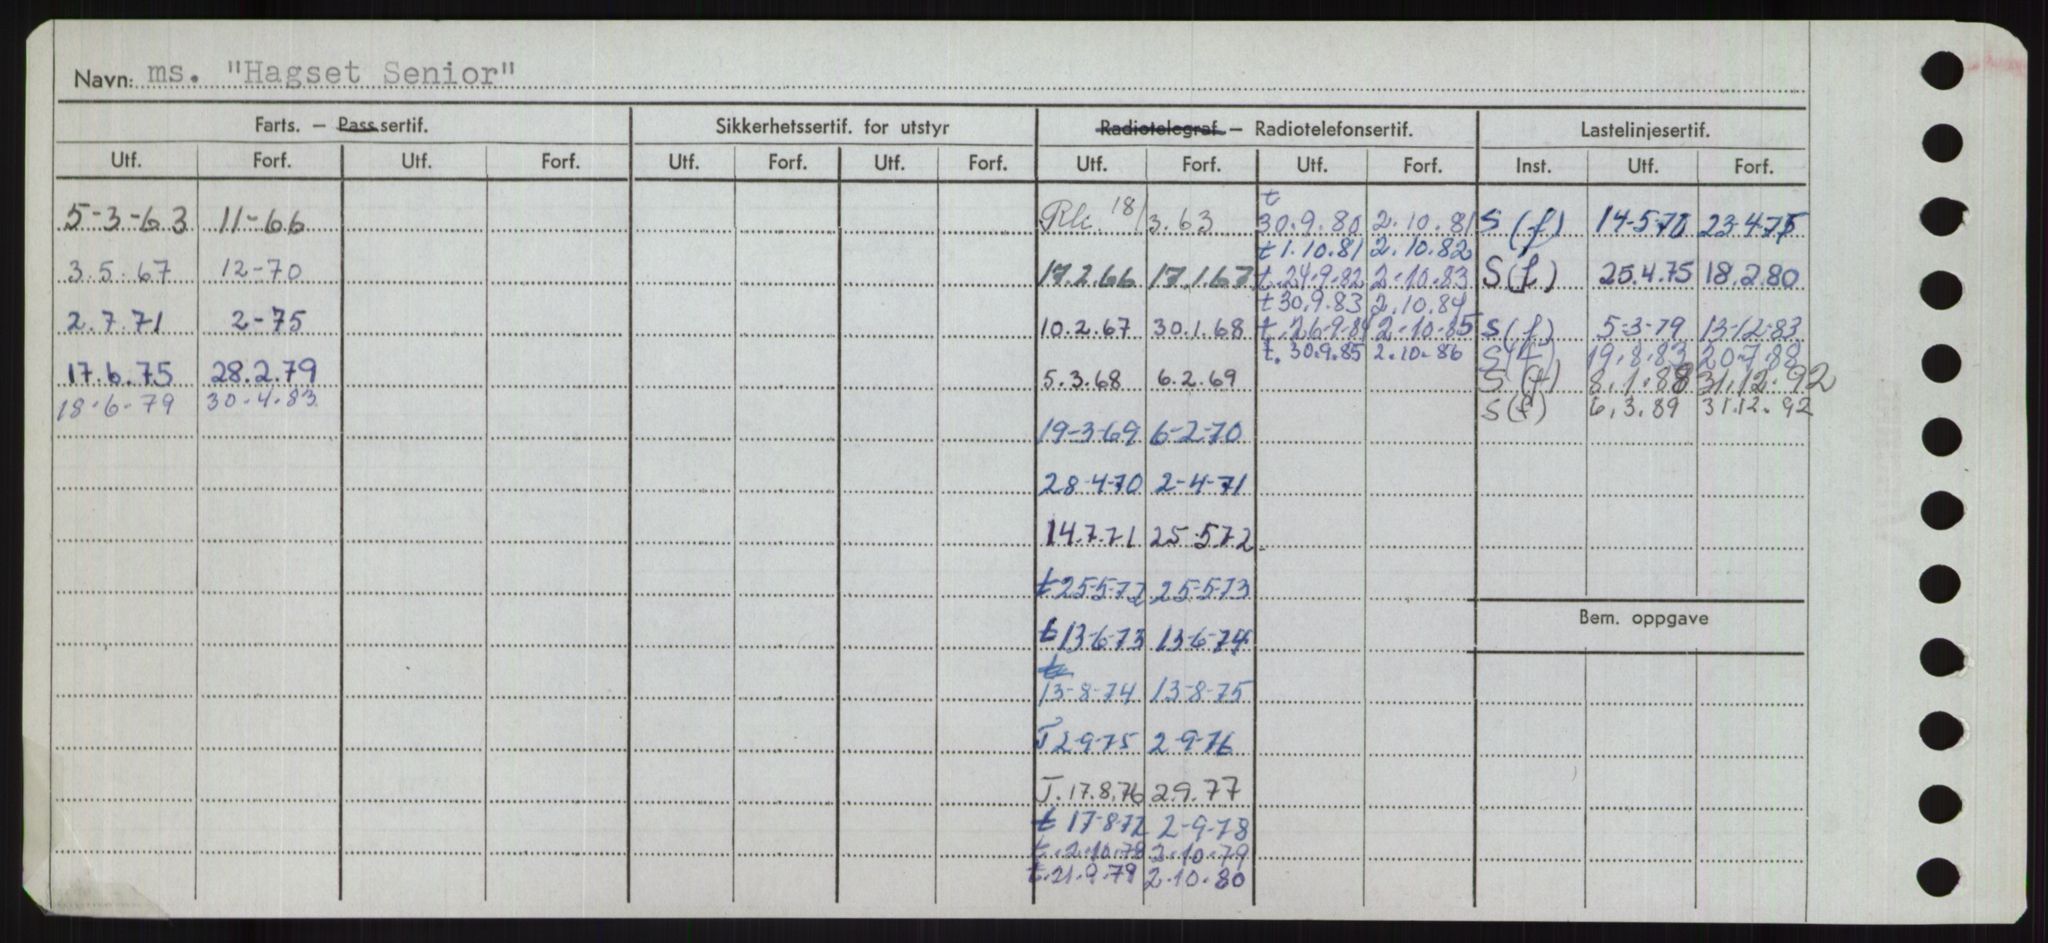 Navn: ms. "Hagset Senior"
Farts. – Pass sertif. Sikkerhetssertif. for utstyr Radiotelegraf – Radiotelefonsertif. Lastelinjesertif.
Utf. Forf. Utf. Forf. Utf. Forf. Utf. Forf. Utf. Forf. Utf. Forf. Inst. Utf. Forf.
t
5-3-63 11-66 18/3.63 30.9.80 2.10.81 S (f) 14-5-70 23-4-75
t 1.10.81 2.10.82
3.5.67 12-70 17.2.66 17.1.67 t.24.9.82 2-10.83 S(f) 25.4.75 18.2.80
t 30.9.83 2.10.84
2.7.71 2-75 10.2.67 30.1.68 t.26-9-84 2-10-85 S(f) 5-3-79 13-12-83
t. 30.9.85 2.10.86 S(f) 19.8.83 20.7.88
17.6.75 28.2.79 5.3.68 6.2.69 S (f) 8.1.88 31.12.92
18-6-79 30-4-83 S(f) 6.3.89 31.12.92
19-3-69 6-2-70
28-4-70 2-4-71
14.7.71 25-5.72
t 25-5-72 25-5-73
t 13-6-73 13-6-74
t
13-8-74 13-8-75
T 2-9-75 2-9-76
T. 17.8.76 2.9.77
t 17-8-77 2-9-78
t. 2.10.78 2.10.79
t.21.9.79 2.10.80
Bem. oppgave